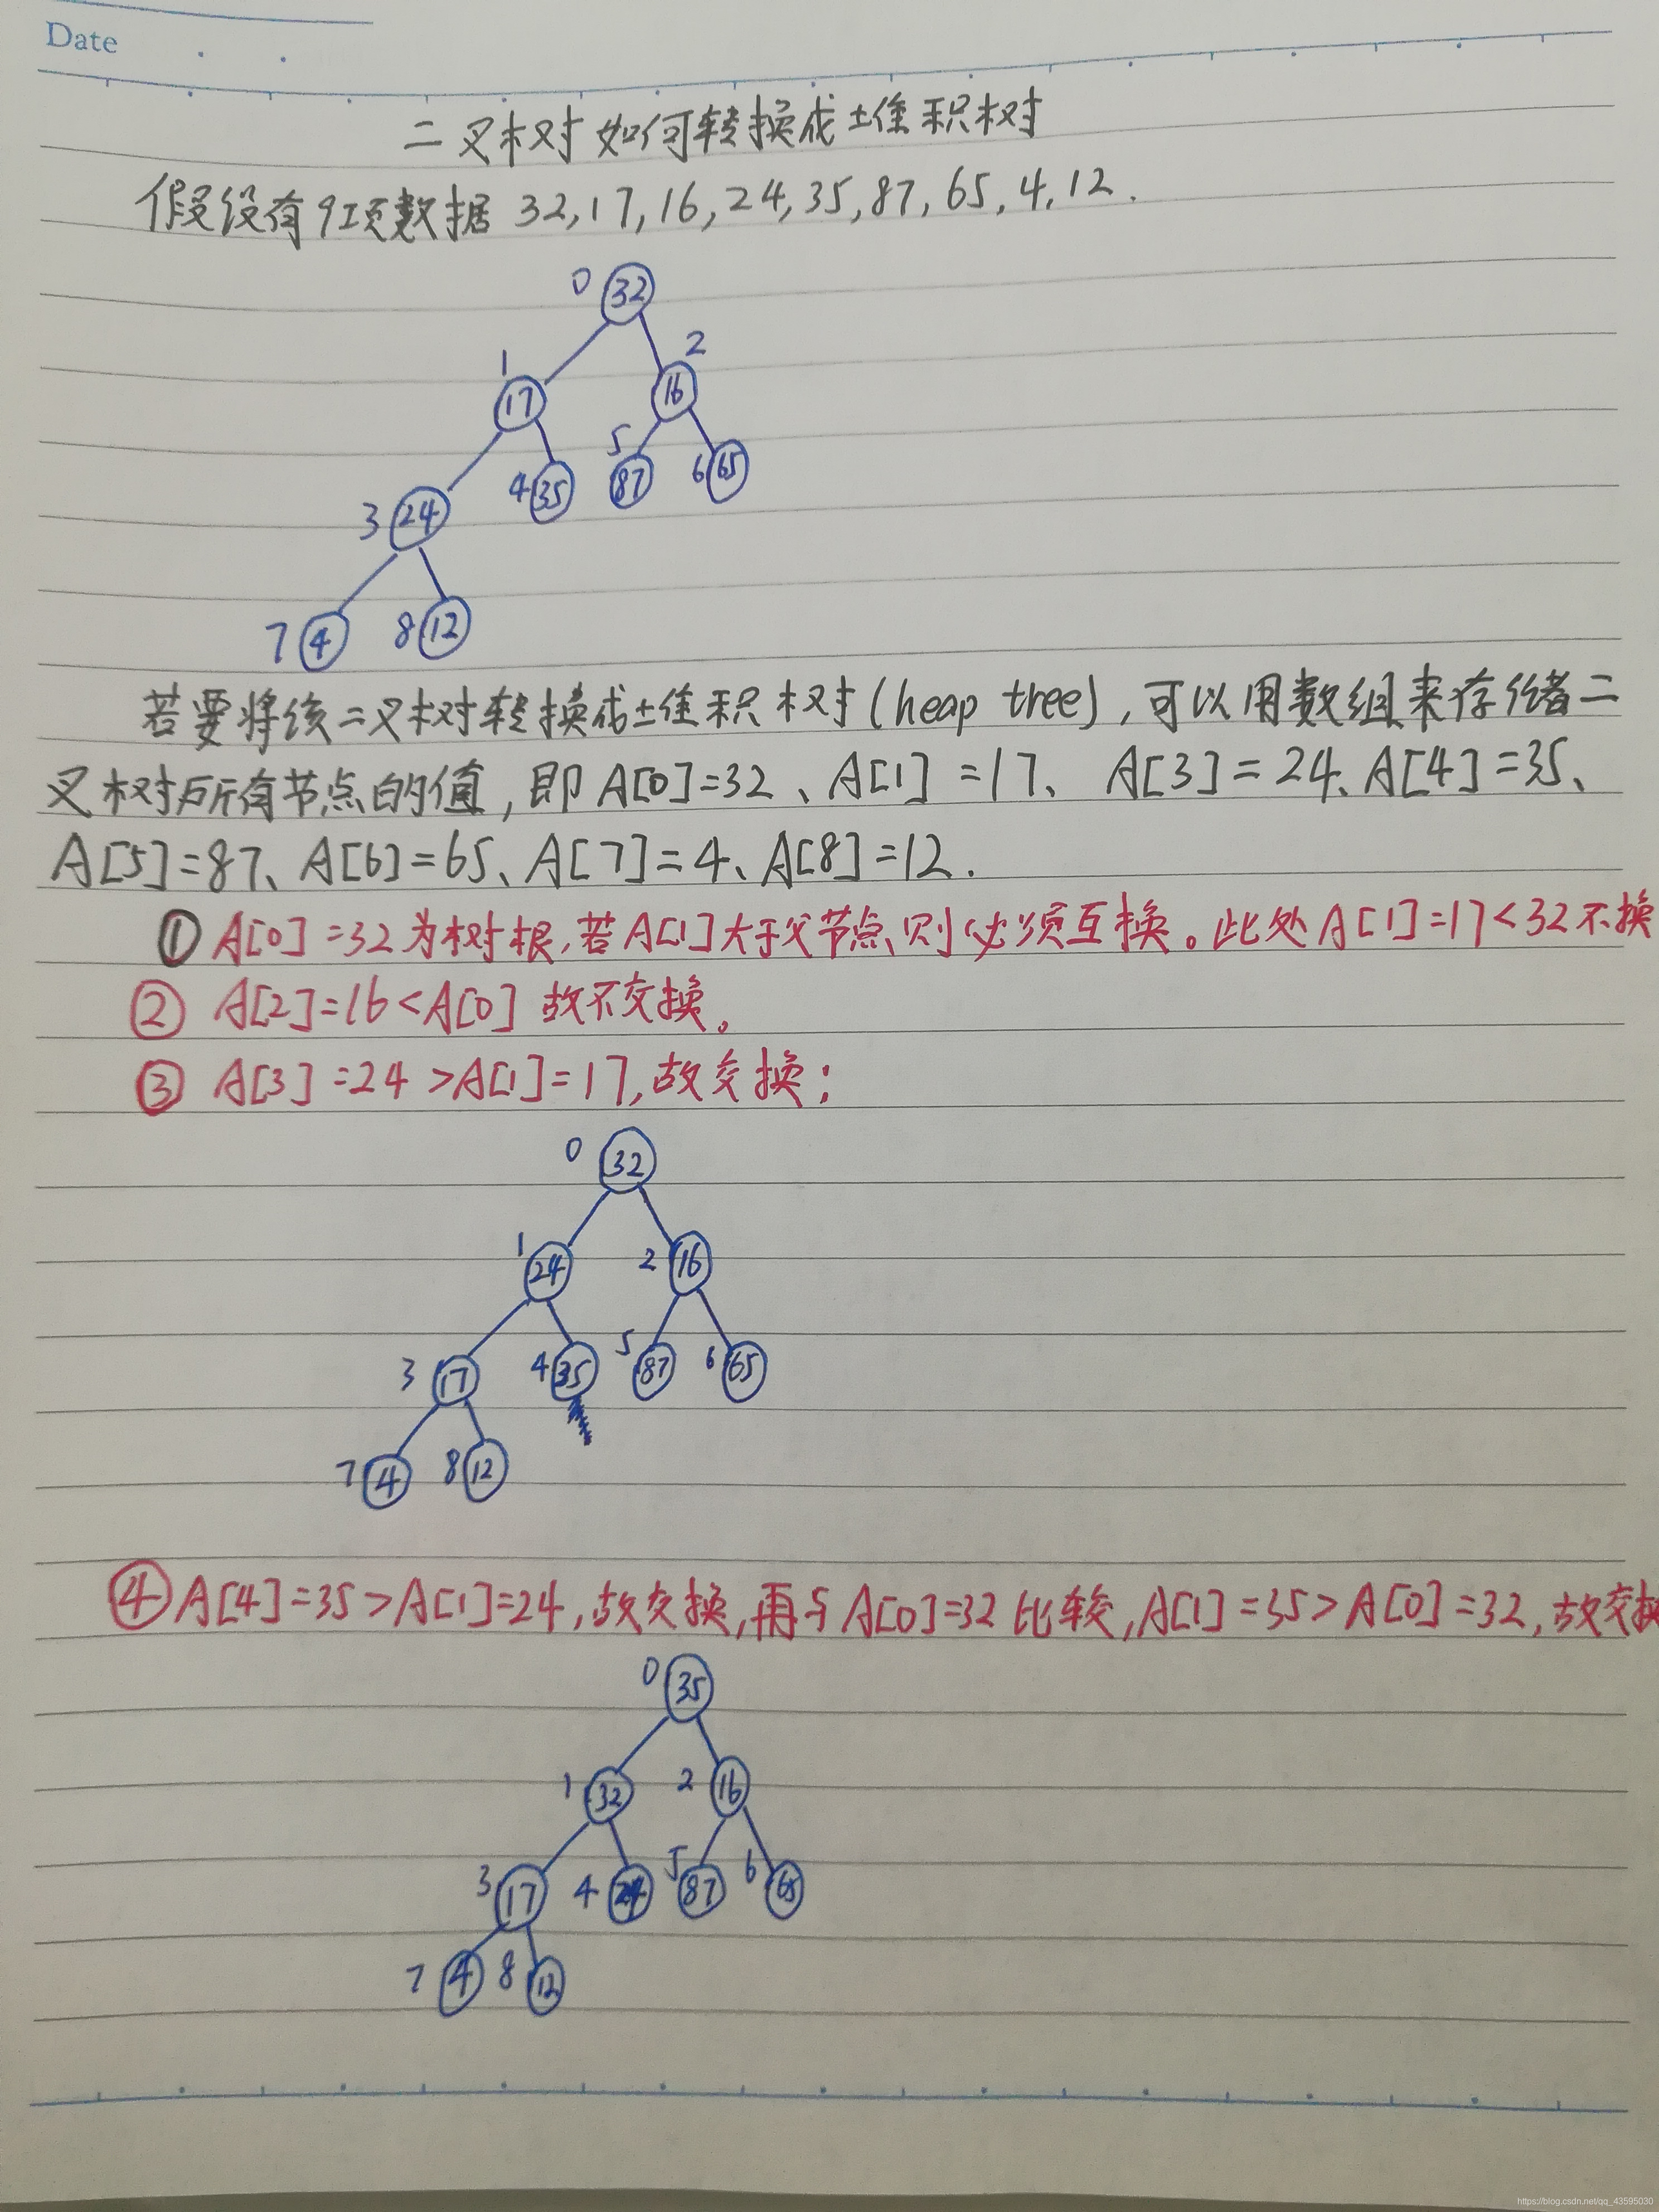 Date
二叉树如何转换成堆积树
假设有9项数据 32,17,16,24,35,87,65,4,12.
0 32
1 2
17 16
5
3 24 4 35 87 6 65
7 4 8 12
若要将该二叉树转换成堆积树(heap tree),可以用数组来存储二
叉树所有节点的值,即A[0]=32、A[1]=17、A[3]=24、A[4]=35、
A[5]=87、A[6]=65、A[7]=4、A[8]=12.
① A[0]=32为树根,若A[1]大于父节点则必须互换。此处A[1]=17<32不换
② A[2]=16<A[0] 故不交换。
③ A[3]=24>A[1]=17,故交换;
0 32
1 24 2 16
3 17 4 35 5 87 6 65
7 4 8 12
④ A[4]=35>A[1]=24,故交换,再与A[0]=32比较,A[1]=35>A[0]=32,故交换
0 35
1 32 2 16
3 17 4 24 5 87 6 65
7 4 8 12
https://blog.csdn.net/qq_43595030